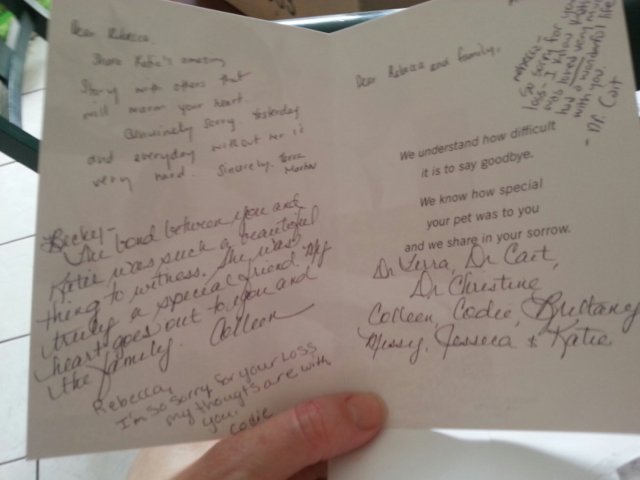 Dear Rebecca.
Share Katie's amazing
Story with others that
will warm your heart.
Genuinely sorry. Yesterday
and everyday without her is
very hard. Sincerely, Terra
Becky-
The bond between you and
Katie was such a beautiful
thing to witness. She was
truly a special friend. My
heart goes out to you and
the family. Colleen
Rebecca,
I'm so sorry for your loss
my thougts are with
you.
Codie
Dear Rebecca and family,
We understand how difficult
it is to say goodbye.
We know how special
your pet was to you
and we share in your sorrow.
Dr Terra, Dr Cait,
Dr Christine
Colleen, Codie, Brittany
Missy, Jessica + Katie
Rebecca-
So sorry for your
loss- I know Katie
was loved very much
had a wonderful life
with you.
- Dr. Cait